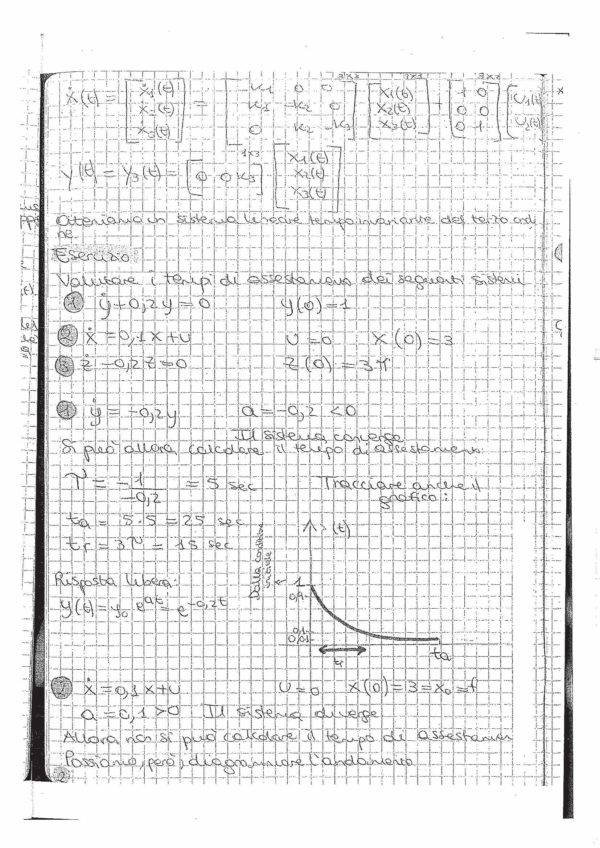 3x3 3x1 3x2
ẋ(t) = [ẋ1(t) ẋ2(t) ẋ3(t)] = [-K1 0 0; K1 -K2 0; 0 K2 -K3] [x1(t) x2(t) x3(t)] + [1 0; 0 0; 0 1] [U1(t) U2(t)]
1x3
y(t) = y3(t) = [0 0 K3] [x1(t) x2(t) x3(t)]
Otteniamo un sistema lineare tempo invariante del terzo ordi
ne.
Esercizio
Valutare i tempi di assestamento dei seguenti sistemi
1 ẏ+0,2y=0 y(0)=1
2 ẋ=0,1x+u U=0 x(0)=3
3 ż-0,2z=0 z(0)=3π
1 ẏ=-0,2y a=-0,2<0
Il sistema converge
Si può allora calcolare il tempo di assestamento
τ = -1/-0,2 = 5 sec Tracciare anche il
grafico:
ta = 5·5 = 25 sec
tr = 3τ = 15 sec
Risposta libera:
y(t)=y0 e^at = e^-0,2t
Dalla condizione
iniziale
(t)
1
0,9
0,1
0,01
tr
ta
ẋ=0,1x+u U=0 x(0)=3=x0=f
a=0,1>0 Il sistema diverge
Allora non si può calcolare il tempo di assestamen
Possiamo, però, diagrammare l'andamento
2